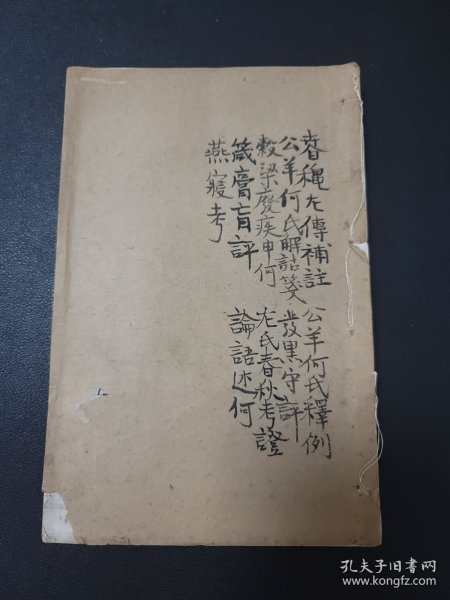 春穐左傳補註　公羊何氏釋例
公羊何氏解詁箋　發墨守評
穀梁廢疾申何　左氏春秋考證
箴膏肓評　論語述何
燕寢考
孔夫子旧书网
www.kongfz.com